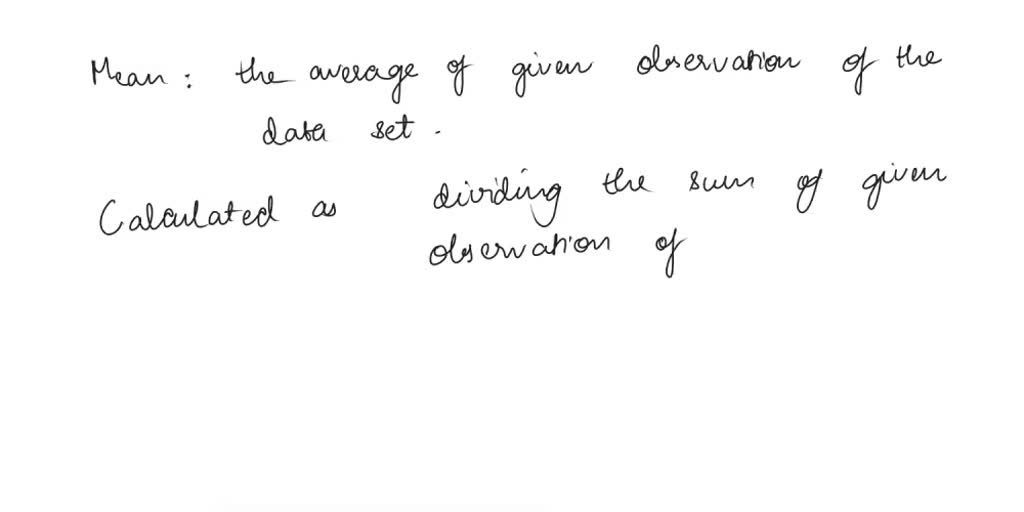 Mean : the average of given observation of the
data set .
Calculated as dividing the sum of given
observation of